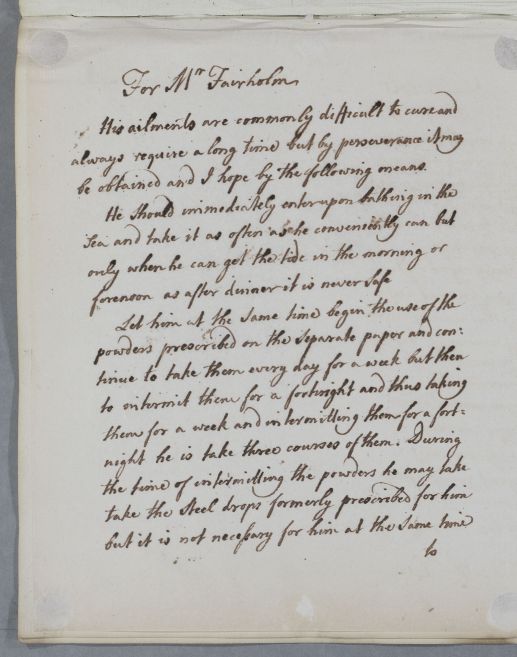 For Mr Fairholm
His ailments are commonly difficult to cure and
always require a long time but by perseverance it may
be obtained and I hope by the following means.
He should immediately enter upon bathing in the
Sea and take it as often as he conveniently can but
only when he can get the tide in the morning or
forenoon as after dinner it is never safe
Let him at the same time begin the use of the
powders prescribed on the separate paper and con:
tinue to take them every day for a week but then
to intermit them for a fortnight and thus taking
them for a week and intermitting them for a fort:
night he is take three courses of them. During
the time of intermitting the powders he may take
take the Steel drops formerly prescribed for him
but it is not necessary for him at the same time
to